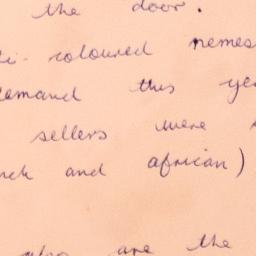 the door.
coloured nemes
demand this ye
sellers were
and african)
are the